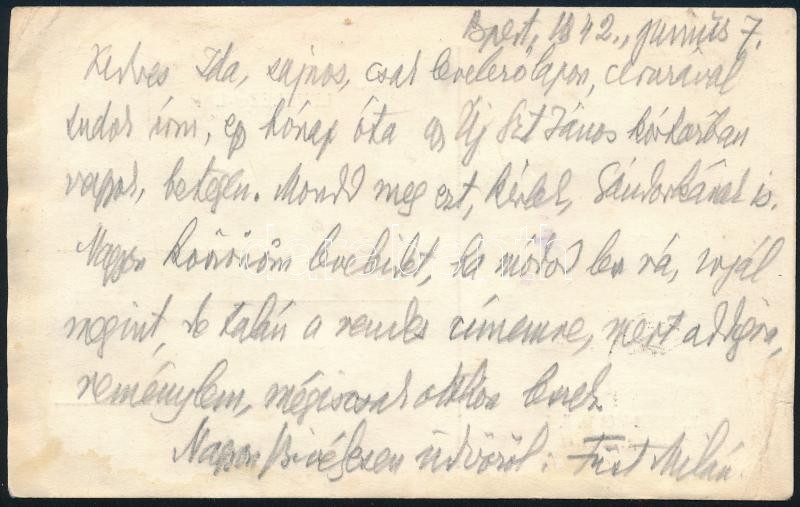 Bpest, 1942., junius 7.
Kedves Ida, sajnos, csak levelezőlapon, ceruzával
tudok írni, egy hónap óta az Új Szt János kórházban
vagyok, betegen. Mondd meg ezt, kérlek, Sándorkának is.
Nagyon köszönöm leveleidet, ha módod lesz rá, írjál
megint, de talán a rendes címemre, mert addigra,
reménylem, mégiscsak otthon leszek.
Nagyon szívélyesen üdvözöl: Füst Milán